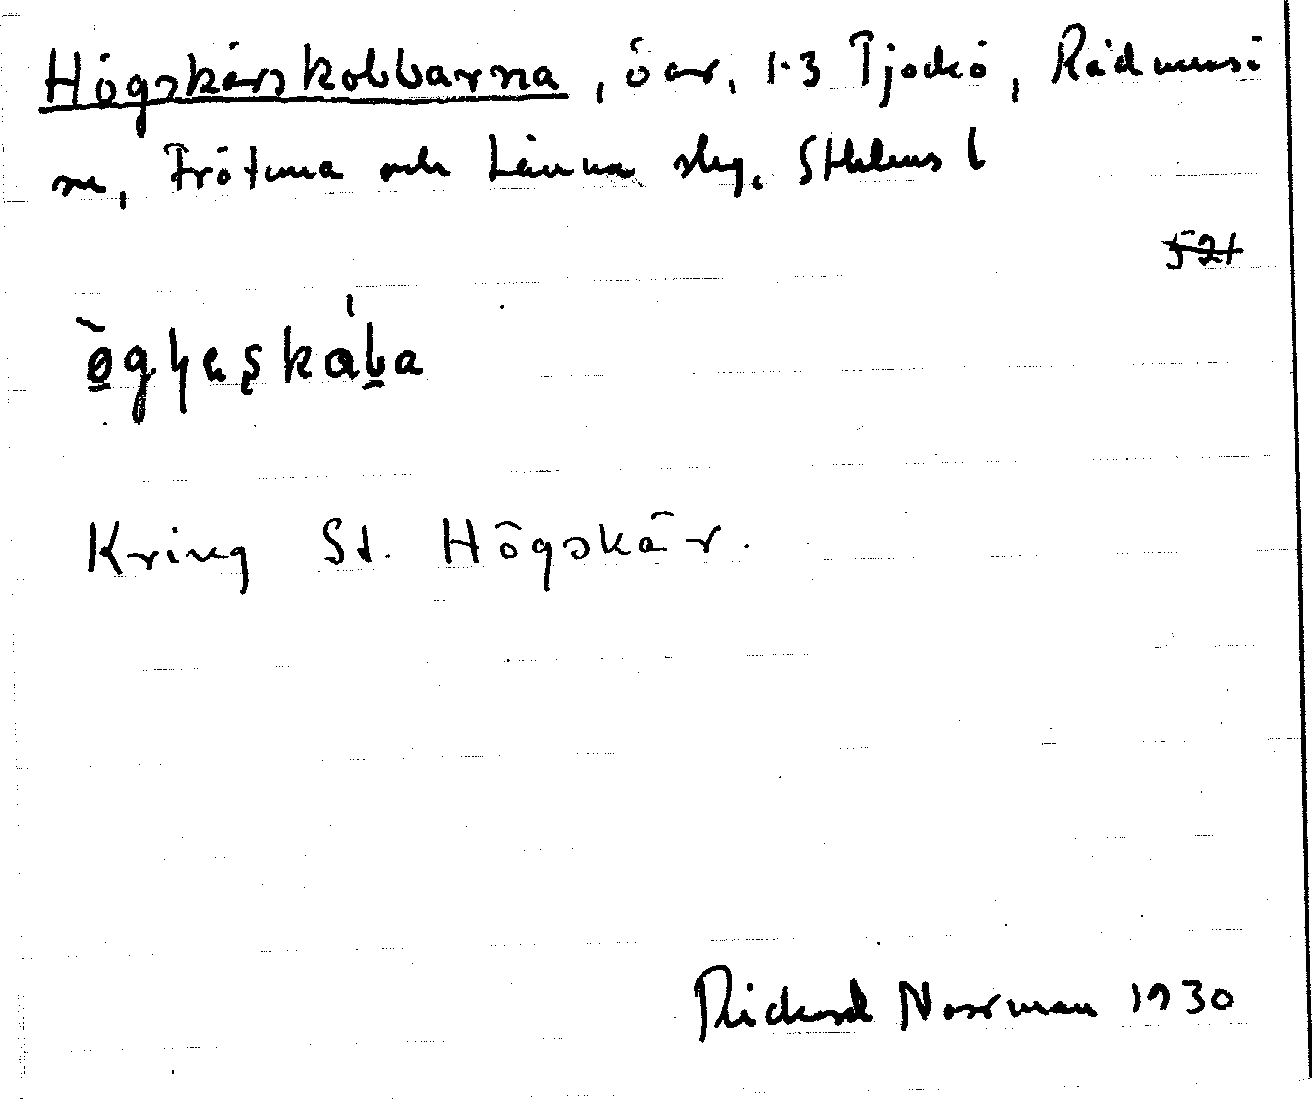 Högskärskobbarna, öar, 1-3 Tjockö, Rådmansö
sn, Frötuna och Länna skg, Sthlms l
521
Kring St. Högskär.
Rickard Norrman 1930